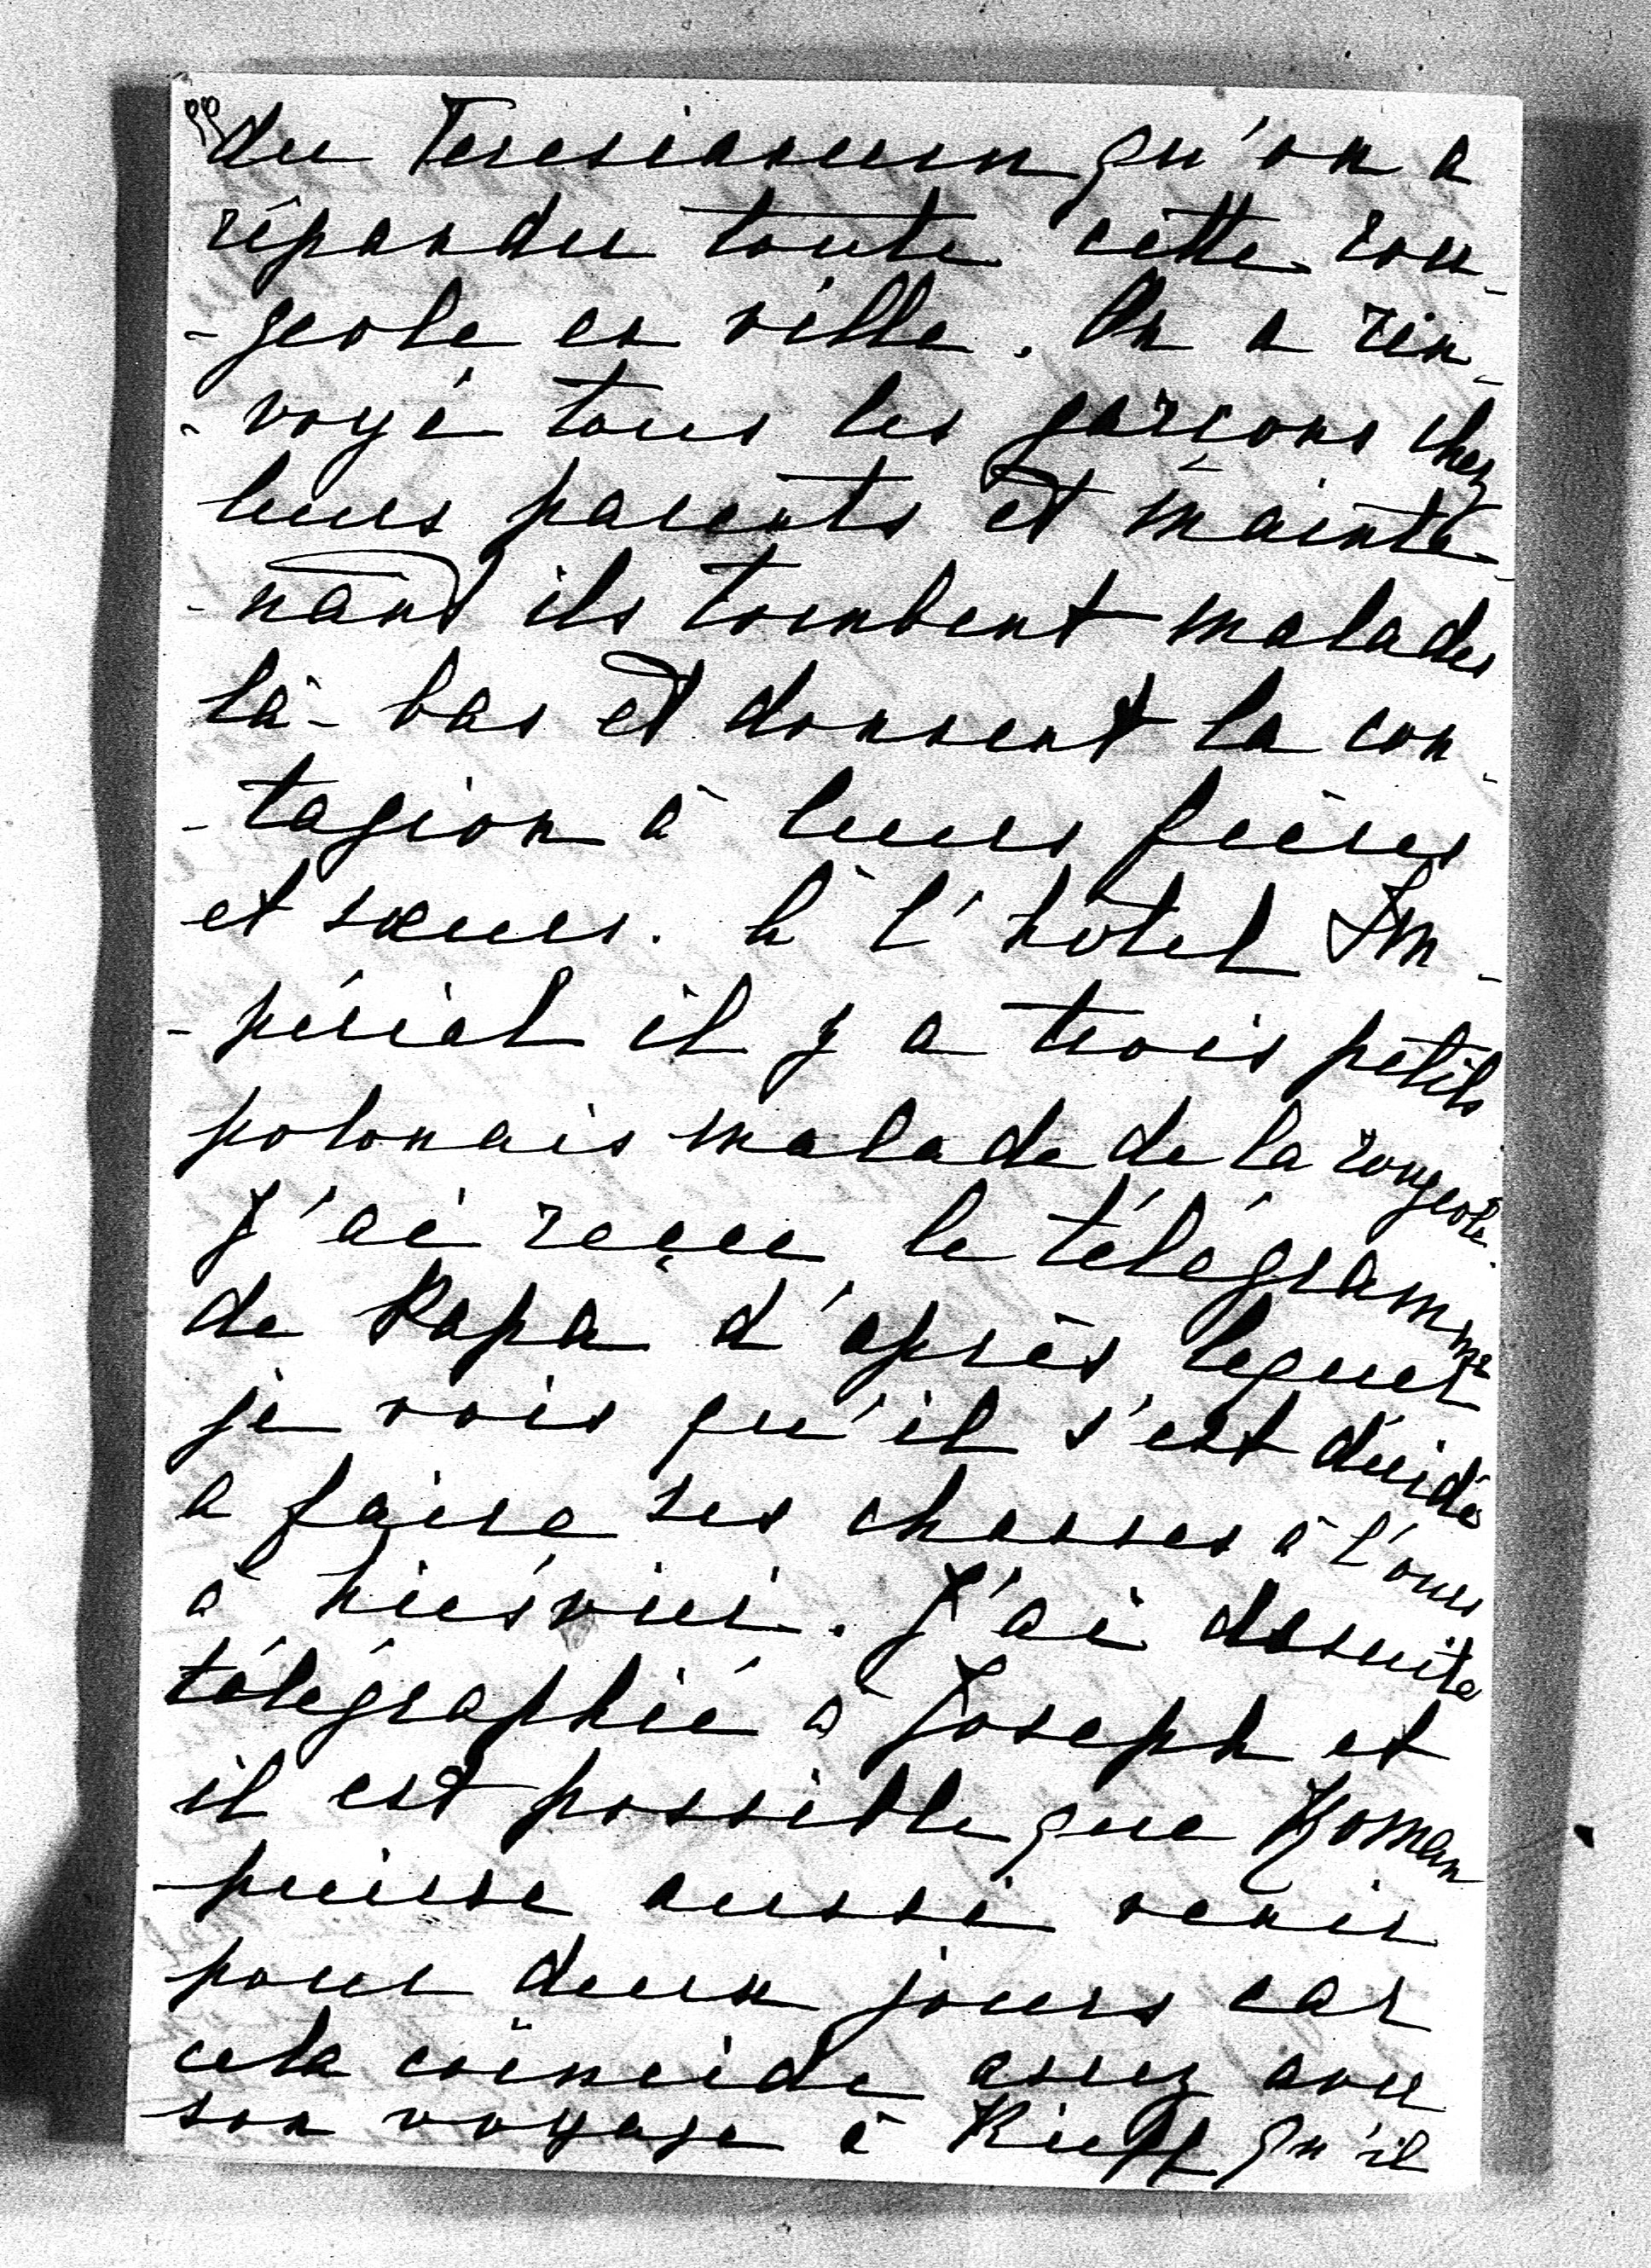 du Teresianum qu'on a
répandu toute cette rou-
-geole en ville. On a ren-
-voyé tous les garçons chez
leurs parents et mainte-
-nant ils tombent malades
là-bas et donnent la con-
-tagion à leurs frères
et sœurs. à l'hôtel Im-
-périal il y a trois petits
polonais malade de la rougeole.
J'ai reçu le télégramme
de Papa d'après lequel
je vois qu'il s'est décidé
a faire ses chasses à l'ours
à . J'ai desuite
télégraphié à Joseph et
il est possible que Roman
puisse aussi venir
pour deux jours car
cela coïncide assez avec
son voyage à Kieff qu'il